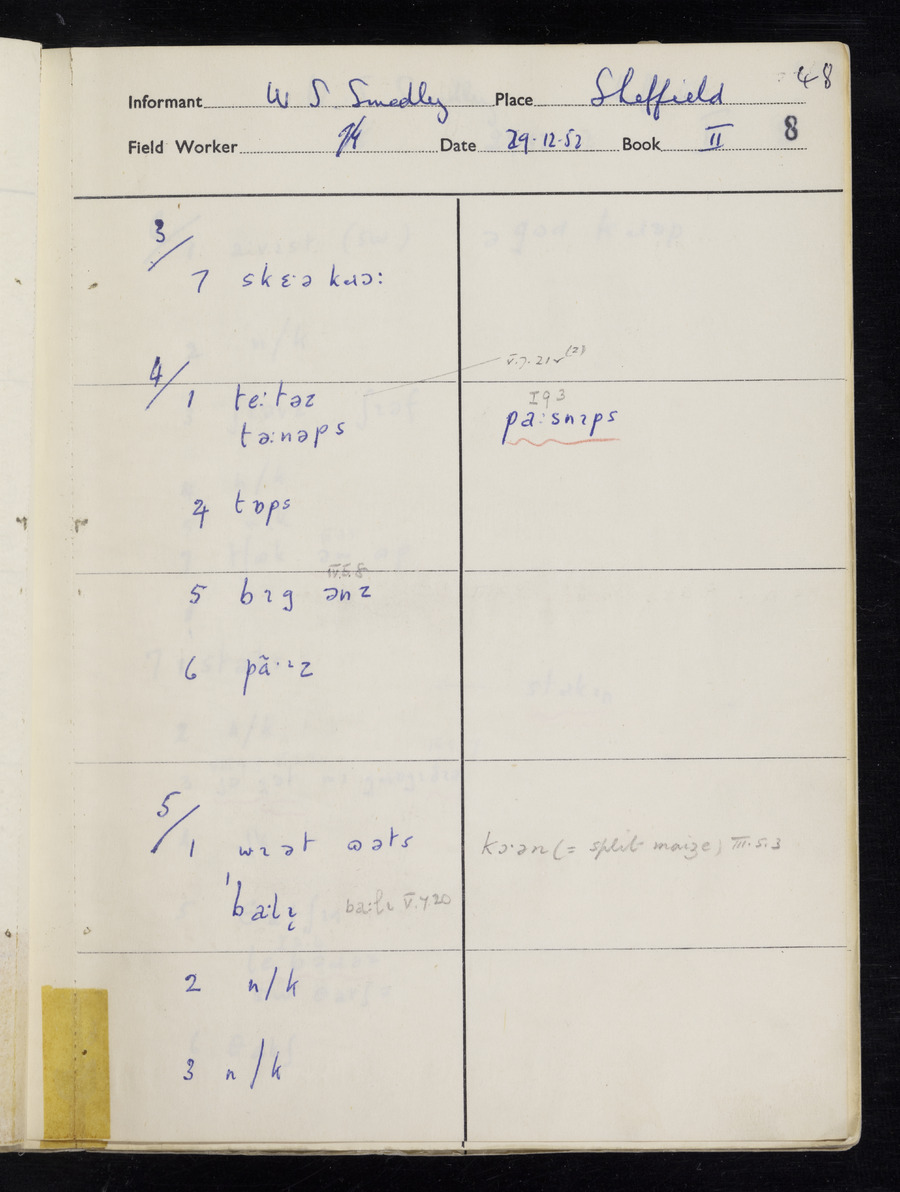 48
Informant W S Smedley Place Sheffield
Field Worker Date 29·12·52 Book II 8
3/
7 skɛ·ə kɹɔ:
4/
V.7.21 (2)
1 te:təz
I 9 3
tə:nəps
pa:snɪps
4 tɒps
IV.5.8
5 bɪg ənz
6 pã·ɪz
5/
1 wɪət ɷəts
kɔ·ən (= split maize) III.5.3
'ba:lɪ̣ ba:lɪ V.7.20
2 n/k
3 n/k